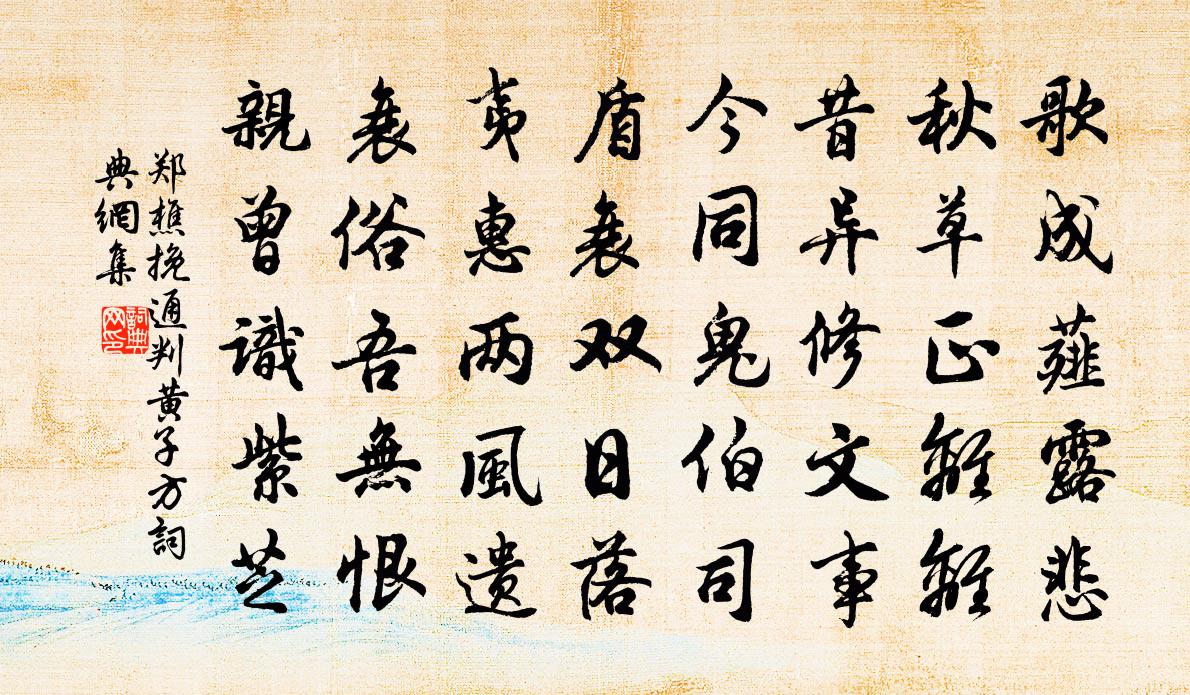 歌成薤露悲
秋草正離離
昔异修文事
今同鬼伯司
盾衰双日落
夷惠两風遗
衰俗吾無恨
親曾識紫芝
郑樵挽通判黄子方詞
典網集
詞典网印